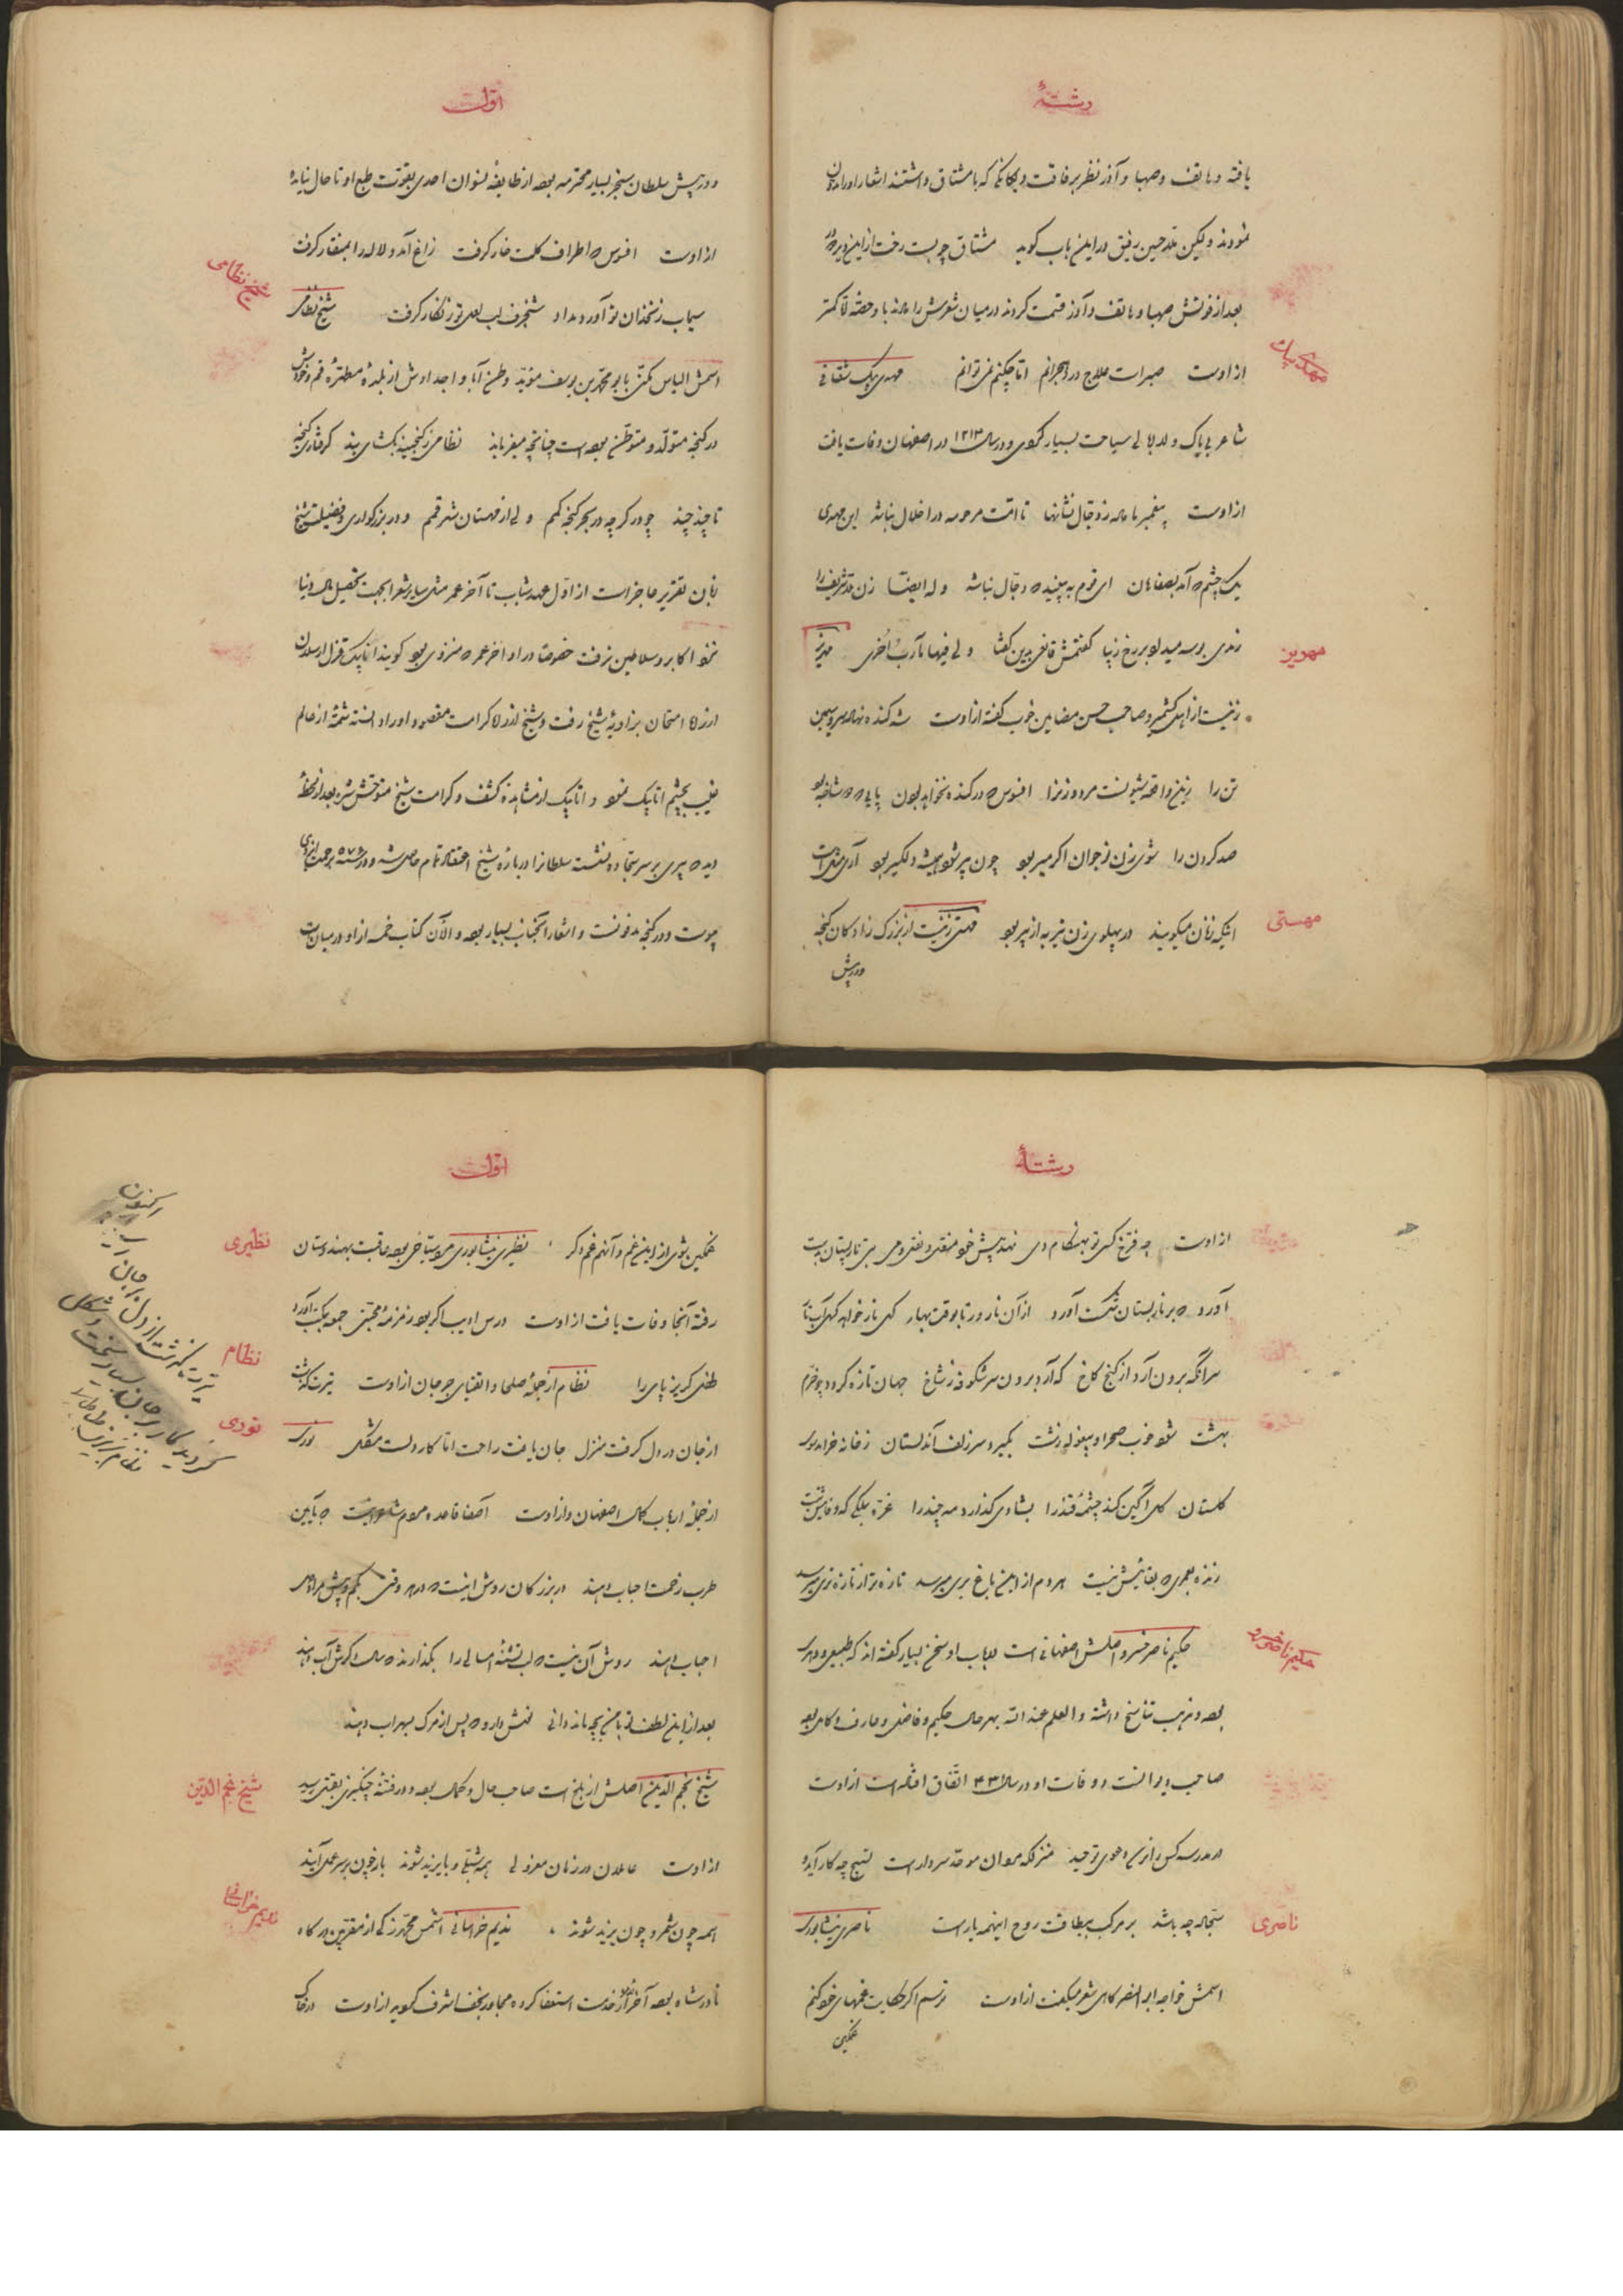 رشتهٔ
یافته و هاتف و صهبا و آذر نظر برفاقت و یگانگی که با مشتاق داشتند اشعار او را مدون
نمودند ولیکن ملا حسین رفیق در این باب گوید مشتاق چو بست رخت ازین دیر
بعد از فوتش صهبا و هاتف و آذر قسمت کردند در میان شعرش را
مهدی بیک
از اوست صبر است علاج درد هجرانم اما چکنم نمی توانم مهدی بیک شقاقی
شاعر بی باک و لاابالی سیاحت بسیار کرده و در سال ۱۲۱۳ در اصفهان وفات یافت
از اوست پیغمبر ما داد ز دجال نشانها تا امت مرحومه در اضلال نباشد این مهدی
یک چشم که آمد بصفاهان ای قوم ببینید که دجال نباشد وله ایضا زن
رندی بوسه میداد بر رخ زیبا گفتمش قانعی بدین گفتا ولی فیها مآرب اخری
مهرین
زنیست از اهل کشمیر و صاحب حسن مضامین خوب گفته از اوست شه کنده نهاد سرو سیمین
تن را زین واقعه شیونست مرد و زن را افسوس که در کنده نخواهد بودن پایی که دو شاخه بود
صد گردن را شوی زن نوجوان اگر میر بود چون پیر شود همیشه دلگیر بود آری مثل است
مهستی
اینکه زنان میگویند در پهلوی زن تیر به از پیر بود مهستی زنیست از بزرگ زادکان کنجه
در پیش
اول
و در پیش سلطان سنجر بسیار محترمه بوده از طایفه نسوان احدی بقوت طبع او تا حال نیامده
از اوست افسوس که اطراف گلت خار گرفت زاغ آمد و لاله را بمنقار گرفت
شیخ نظامی
سیماب زنخدان تو آورد مداد شنجرف لب لعل تو زنگار گرفت شیخ نظامی
اسمش الیاس مکنی بابو محمد بن یوسف مؤید وطن آبا و اجدادش از بلده مطهره قم و خودش
در کنجه متولد و متوطن بوده است چنانچه میفرماید نظامی ز گنجینه بکشای بند گرفتاری گنجه
تا چند چند چو در گرچه در بحر گنجه گمم ولی از قهستان شهر قمم و در بزرگواری و فضیلت شیخ
زبان تقریر عاجز است از اول عهد شباب تا آخر عمر مثل سایر شعرا بجهت تحصیل مال دنیا
نزد اکابر و سلاطین نرفت خصوصا در اواخر عمر که منزوی بود گویند اتابک قزل ارسلان
از راه امتحان بزاویه شیخ رفت و شیخ از راه کرامت مقصود او را دانسته شمهٔ از عالم
غیب بچشم اتابک نمود و اتابک از مشاهده کشف و کرامت شیخ متوحش شده بعد از لحظهٔ
دید که پیری بر سر سجاده نشسته سلطان را درباره شیخ اعتقاد تمام حاصل شد و در سنه ۵۷۶ برحمت ایزدی
پیوست و در گنجه مدفونست و اشعار آنجناب بسیار بوده و الآن کتاب خمسه از او در میان است
رشتهٔ
از اوست چه فرخ کسی کو بهنگام دی نهد پیش خود منقل و نقل و می بتی نار پستان بدست
آورد که بر نار پستان شکست آورد از آن نار و ر تا بوقت بهار گهی نار خواهد گهی آب نار
سرانگه برون آرد از کنج کاخ که آرد برون سر شکوفه ز شاخ جهان تازه گردد چو خرم
بهشت شود خوب صحرا و بیغوله زشت بگیرد سر زلف آن دلستان ز خانه خرامد سوی
گلستان گل آگین کند چشمهٔ قند را بشادی گذارد دمی چند را غره بملکی که وفائیش نیست
زنده بعمری که بقائیش نیست هر دم از این باغ بری میرسد تازه تر از تازه تری میرسد
حکیم ناصر خسرو
حکیم ناصر خسرو اصلش اصفهانی است در باب او سخن بسیار گفته اند که طبیعی و دهری
بوده و مذهب تناسخ داشته والعلم عند الله بهر حال حکیم و فاضل و عارف و کامل بوده
صاحب دیوانست و وفات او در سال ۴۳۱ اتفاق افتاده است از اوست
در مدرسه کس را نرسد دعوی توحید منزلگه مردان موحد سر دار است تسبیح چه کار آید و
ناصری
سجاده چه باشد بر مرکب بیطاقت روح اینهمه بار است ناصری نیشابوری
اسمش خواجه ابوالنصر گاهی شعر میگفت از اوست ترسم اگر حکایت غمهای خود کنم
غمگین
اول
نظیری
غمگین شوی از این غم و آنهم غم دگر نظیری نیشابوری مرد سیاحی بوده عاقبت بهندوستان
رفته آنجا وفات یافت از اوست درس ادیب اگر بود زمزمهٔ محبتی جمعه بمکتب آورد
نظام
طفل گریزپای را نظام از جمله صلحا و اتقیای جرجان از اوست تیرت گذشت
نوری
از جان در دل گرفت منزل جان یافت راحت اما کار دلست مشکل نوری
از جمله ارباب کمال اصفهان و از اوست آصفا قاعده مردم شاهیست که بآیین
طرب زحمت احباب دهند در بزرگان روش اینست که در هر وقتی کم و بیش مراد دل
احباب دهند روش آن نیست که لب تشنهٔ امسالی را بگذارند که سال دگرش آب دهند
بعد از این لطف تو با من بچه ماند دانی نوش دارو که پس از مرگ بسهراب دهند
شیخ نجم الدین
شیخ نجم الدین اصلش از بلخ است صاحب حال و کمال بوده و در فتنهٔ چنگیزی بقتل رسید
از اوست عاملان در زمان معزولی همه شبلی و بایزید شوند باز چون بر سر عمل آیند
ندیم خراسانی
همه چون شمر و چون یزید شوند ندیم خراسانی اسمش محمد زکی از مقربین درگاه
نادر شاه بوده آخر از خدمت استعفا کرده مجاور نجف اشرف گردید از اوست در خاک
تیرت گذشت از دل